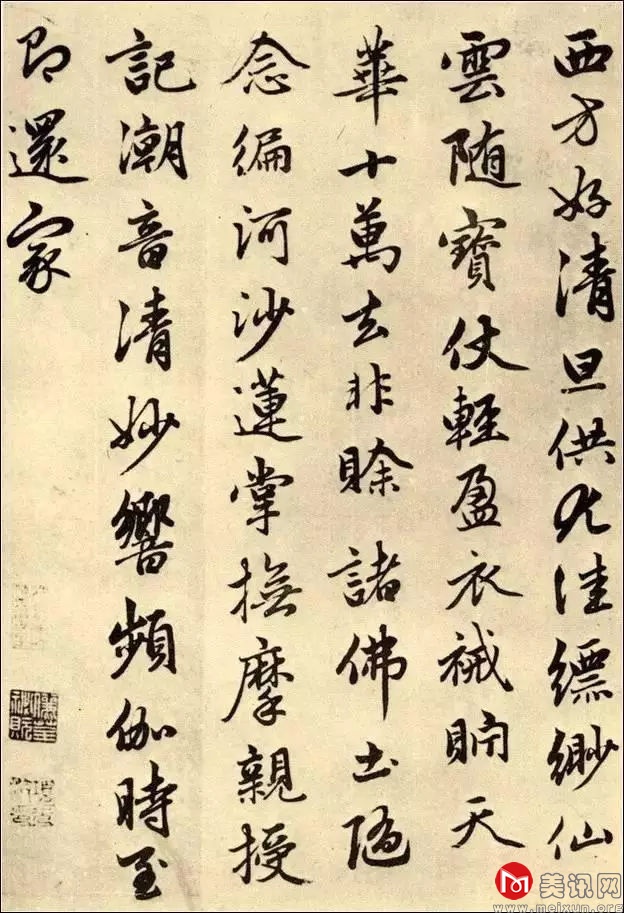 西方好清旦供尤佳縹緲仙
雲随寳仗輕盈衣祴貯天
華十萬去非賒諸佛土隨
念徧河沙蓮掌撫摩親授
記潮音清妙響頻伽時至
即還家
美讯网
www.meixun.org